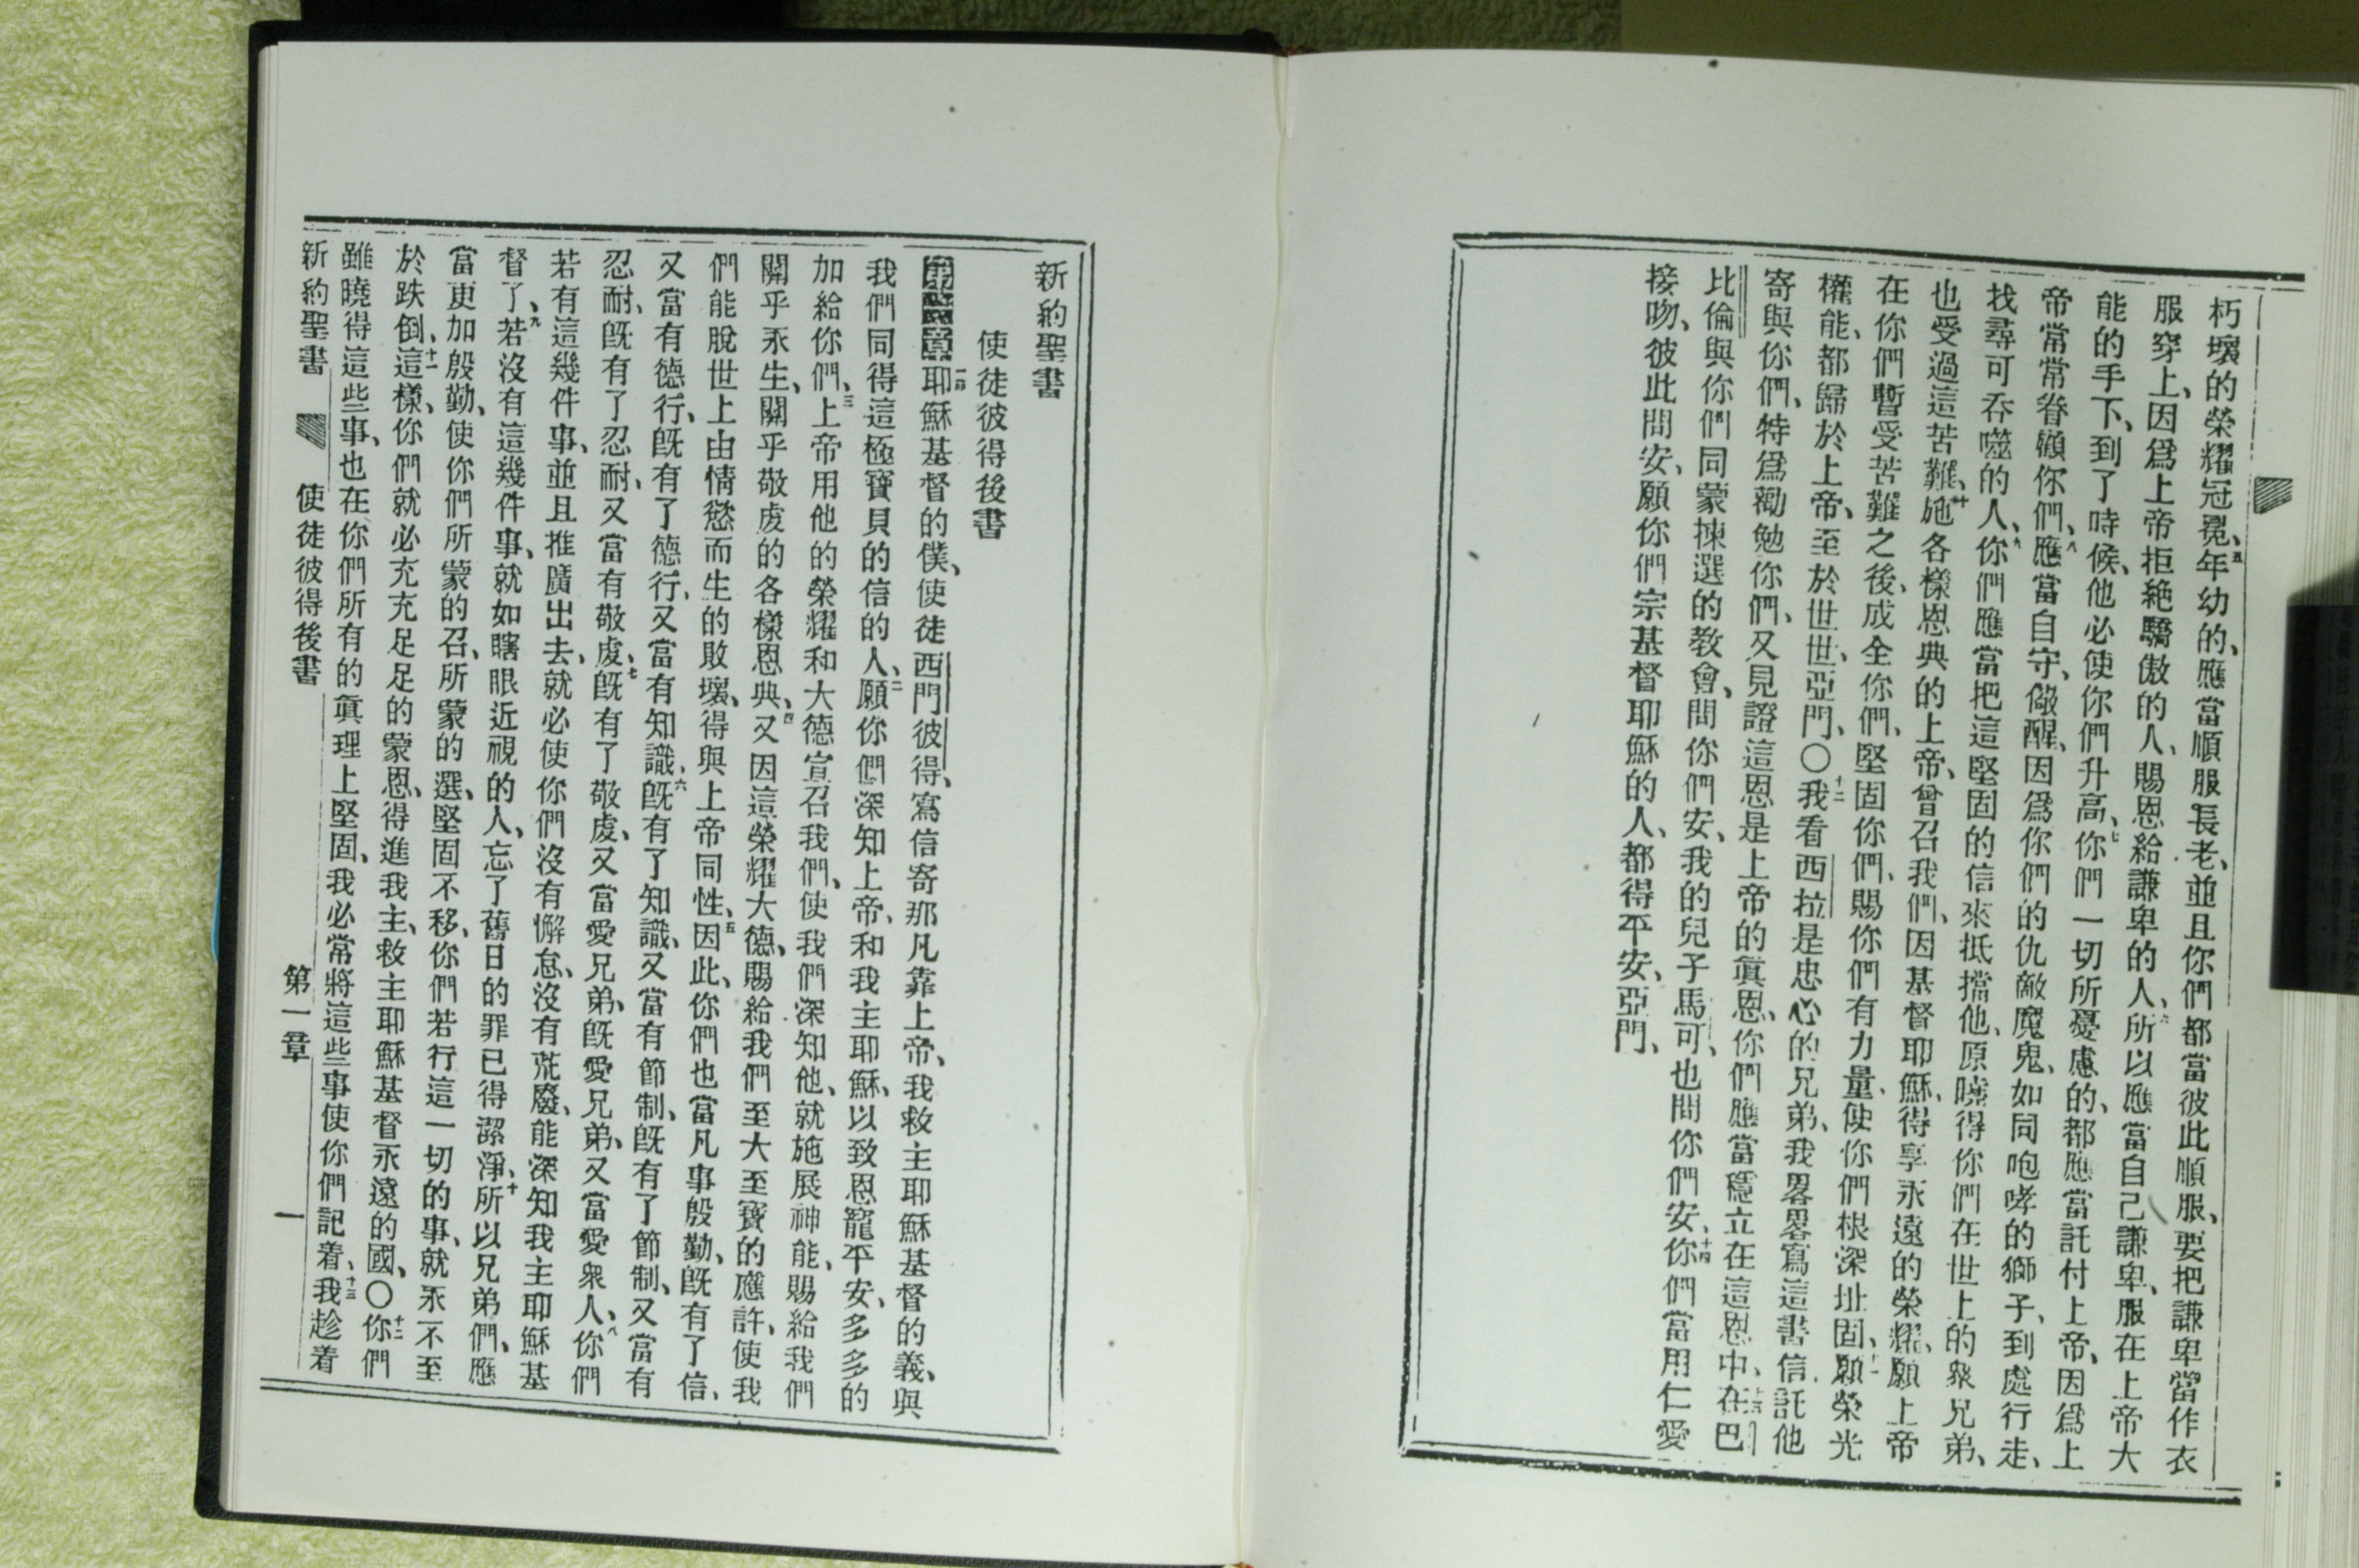 朽壞的榮耀冠冕、五年幼的、應當順服長老、並且你們都當彼此順服、要把謙卑當作衣
服穿上、因爲上帝拒絶驕傲的人、賜恩給謙卑的人、六所以應當自己謙卑、服在上帝大
能的手下、到了時候、他必使你們升高、七你們一切所憂慮的、都應當託付上帝、因爲上
帝常常眷顧你們、八應當自守、儆醒、因爲你們的仇敵魔鬼、如同咆哮的獅子、到處行走、
找尋可吞噬的人、九你們應當把這堅固的信來抵擋他、原曉得你們在世上的衆兄弟、
也受過這苦難、十施各樣恩典的上帝、曾召我們、因基督耶穌、得享永遠的榮耀、願上帝
在你們暫受苦難之後、成全你們、堅固你們、賜你們有力量、使你們根深址固、十一願榮光
權能、都歸於上帝、至於世世、亞門、〇十二我看西拉是忠心的兄弟、我畧畧寫這書信、託他
寄與你們、特爲勸勉你們、又見證這恩是上帝的眞恩、你們應當穩立在這恩中、十三在巴
比倫與你們同蒙揀選的教會、問你們安、我的兒子馬可、也問你們安、十四你們當用仁愛
接吻、彼此問安、願你們宗基督耶穌的人、都得平安、亞門、
新約聖書
使徒彼得後書
第一章一耶穌基督的僕、使徒西門彼得、寫信寄那凡靠上帝、我救主耶穌基督的義、與
我們同得這極寶貝的信的人、二願你們深知上帝、和我主耶穌、以致恩寵平安、多多的
加給你們、三上帝用他的榮耀和大德宣召我們、使我們深知他、就施展神能、賜給我們
關乎永生、關乎敬虔的各樣恩典、四又因這榮耀大德、賜給我們至大至寶的應許、使我
們能脫世上由情慾而生的敗壞、得與上帝同性、五因此、你們也當凡事殷勤、旣有了信、
又當有德行、旣有了德行、又當有知識、六旣有了知識、又當有節制、旣有了節制、又當有
忍耐、旣有了忍耐、又當有敬虔、七旣有了敬虔、又當愛兄弟、旣愛兄弟、又當愛衆人、八你們
若有這幾件事、並且推廣出去、就必使你們沒有懈怠、沒有荒廢、能深知我主耶穌基
督了、九若沒有這幾件事、就如瞎眼近視的人、忘了舊日的罪已得潔淨、十所以兄弟們、應
當更加殷勤、使你們所蒙的召、所蒙的選、堅固不移、你們若行這一切的事、就永不至
於跌倒、十一這樣、你們就必充充足足的蒙恩、得進我主、救主耶穌基督永遠的國、〇十二你們
雖曉得這些事、也在你們所有的眞理上堅固、我必常將這些事使你們記着、十三我趁着
新約聖書 使徒彼得後書 第一章 一